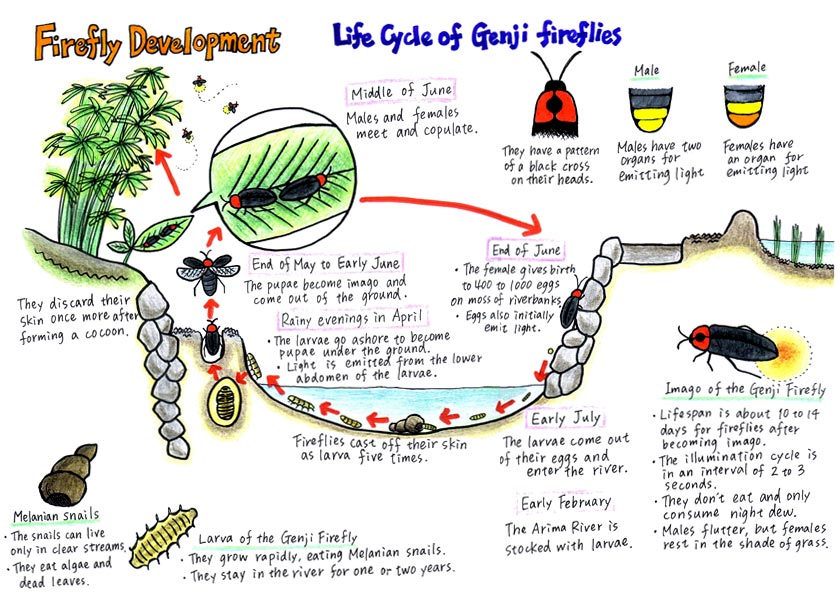 Firefly Development
Life Cycle of Genji fireflies
Middle of June
Males and females
meet and copulate.
They have a pattern
of a black cross
on their heads.
Male
Males have two
organs for
emitting light
Female
Females have
an organ for
emitting light
End of May to Early June
The pupae become imago and
come out of the ground.
They discard their
skin once more after
forming a cocoon.
Rainy evenings in April
• The larvae go ashore to become
pupae under the ground.
• Light is emitted from the lower
abdomen of the larvae.
End of June
• The female gives birth
to 400 to 1000 eggs
on moss of riverbanks
• Eggs also initially
emit light.
Fireflies cast off their skin
as larva five times.
Early July
The larvae come out
of their eggs and
enter the river.
Early February
The Arima River is
stocked with larvae.
Imago of the Genji Firefly
• Lifespan is about 10 to 14
days for fireflies after
becoming imago.
• The illumination cycle is
in an interval of 2 to 3
seconds.
• They don't eat and only
consume night dew.
• Males flutter, but females
rest in the shade of grass.
Melanian snails
• The snails can live
only in clear streams.
• They eat algae and
dead leaves.
Larva of the Genji Firefly
• They grow rapidly, eating Melanian snails.
• They stay in the river for one or two years.